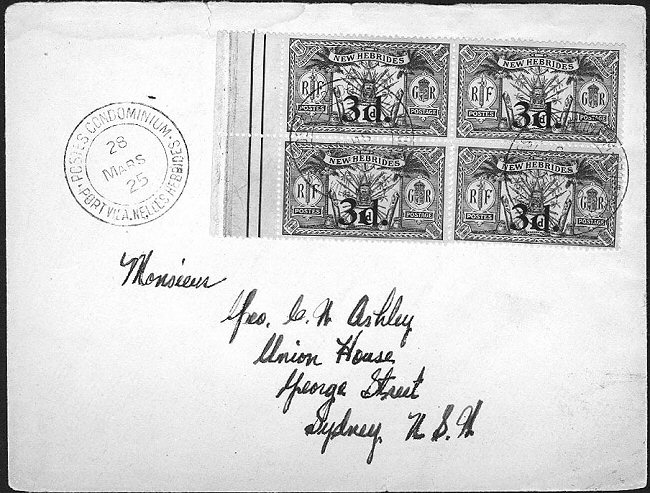 NEW HEBRIDES
R F
G R
POSTES
POSTAGE
3d.
NEW HEBRIDES
R F
G R
POSTES
POSTAGE
3d.
NEW HEBRIDES
R F
G R
POSTES
POSTAGE
3d.
NEW HEBRIDES
R F
G R
POSTES
POSTAGE
3d.
POSTES CONDOMINIUM
28
MARS
25
PORT VILA. NELLES HEBRIDES
Monsieur
Geo. C. W Ashley
Union House
George Street
Sydney. N. S. W